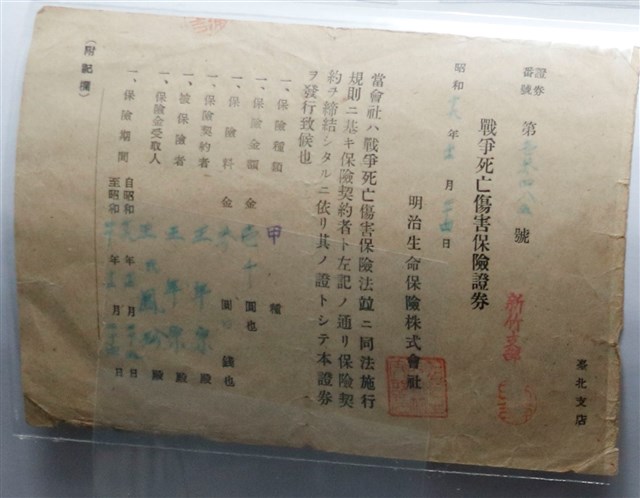 臺北支店
新竹
證券番號 第 號
戰爭死亡傷害保險證券
昭和 年 月 日
明治生命保險株式會社
當會社ハ戰爭死亡傷害保險法竝ニ同法施行
規則ニ基キ保險契約者ト左記ノ通リ保險契
約ヲ締結シタルニ依リ其ノ證トシテ本證券
ヲ發行致候也
一、保險種類 甲種
一、保險金額 金 千圓也
一、保險料 金 圓 錢也
一、保險契約者 王 殿
一、被保險者 王 殿
一、保險金受取人 殿
一、保險期間 自昭和 年 月 日
至昭和 年 月 日
(附記欄)